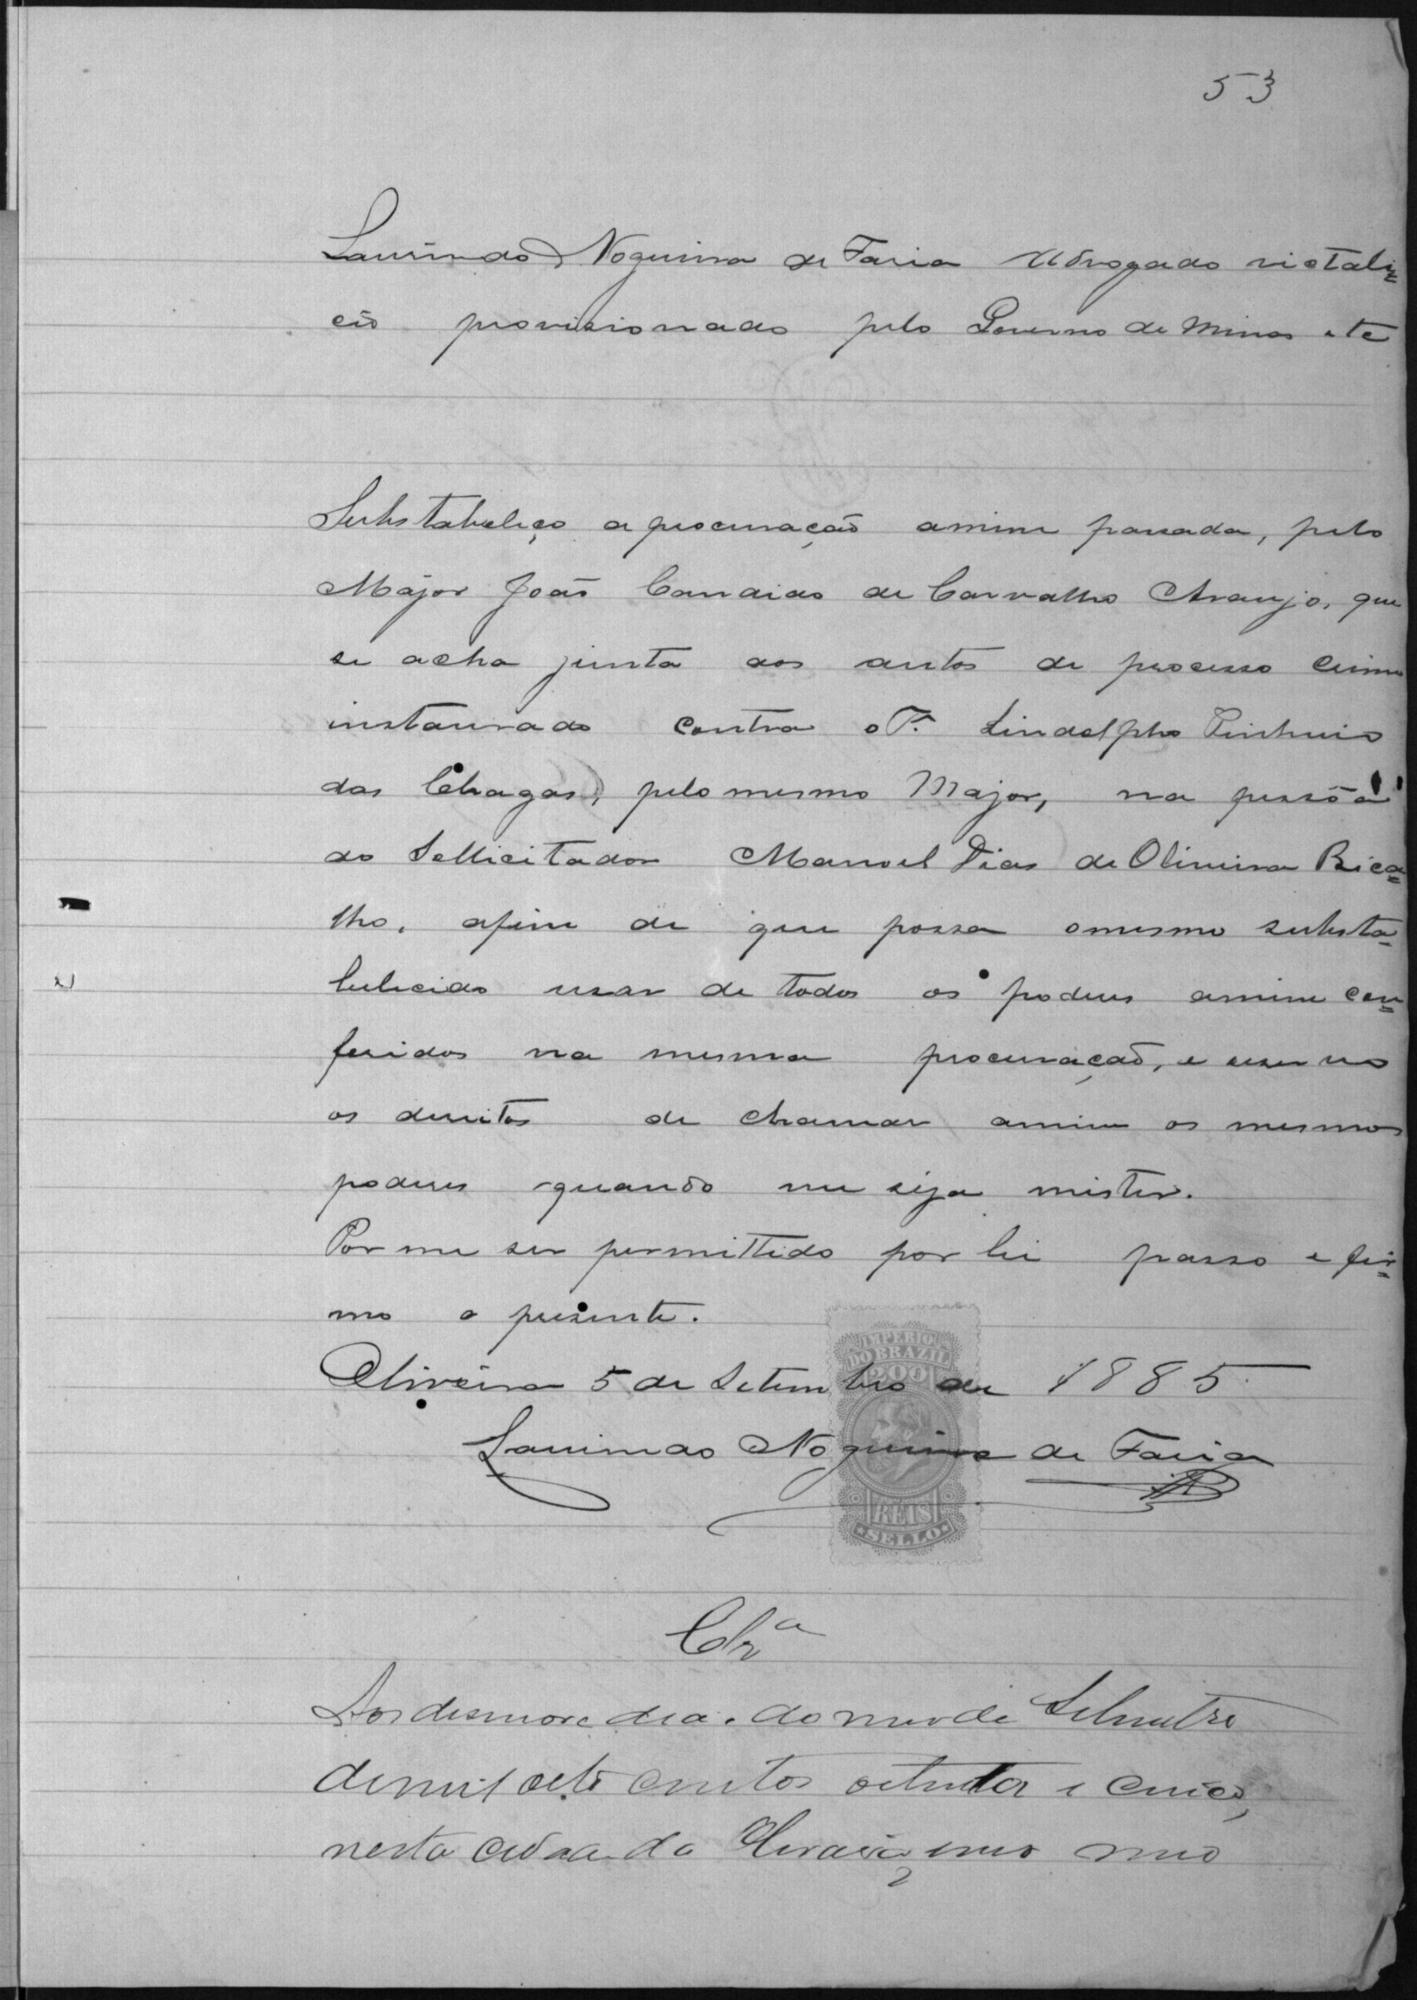 53
Laurindo Nogueira de Faria Advogado vietali=
cio provisionado pelo Governo de Minas etc
Substabeleço a procuração amim passada, pelo
Major João Candido de Carvalho Araujo, que
se acha junta aos autos de processo crime
instaurado contra o Lindolpho Pinheiro
das Chagas, pelo mesmo Major, na pessôa
do Sollicitador Manoel Dias de Oliveira Bica=
lho, afim de que possa omesmo substa=
belecido usar de todos os poderes amim con=
feridos na mesma procuração, e reservo
os direitos de chamar amim os mesmos
poderes quando me seja mister.
Por me ser permittido por lei passo e fir=
mo o presente.
Oliveira 5 de Setembro de 1885
Laurindo Nogueira de Faria
IMPERIO
DO BRAZIL
200
REIS
SELLO
Aos desnove dia do mes de Setembro
de mil oito centos oitenta e cinco,
nesta cidade da em meo